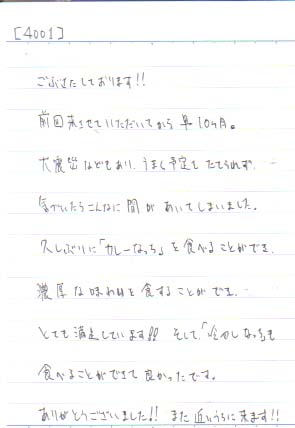 [4001]
ごぶさたしております!!
前回来させていただいてから 早 10ヶ月。
大震災などもあり、うまく予定を たてられず、…
気づいたらこんなに 間が あいてしまいました。
久しぶりに「カレーなっち」を 食べることができ、
濃厚 な味わいを 食することができ、…
とても 満足しています!! そして、「冷やしなっち」も
食べることができて 良かったです。
ありがとうございました!! また 近いうちに来ます!!